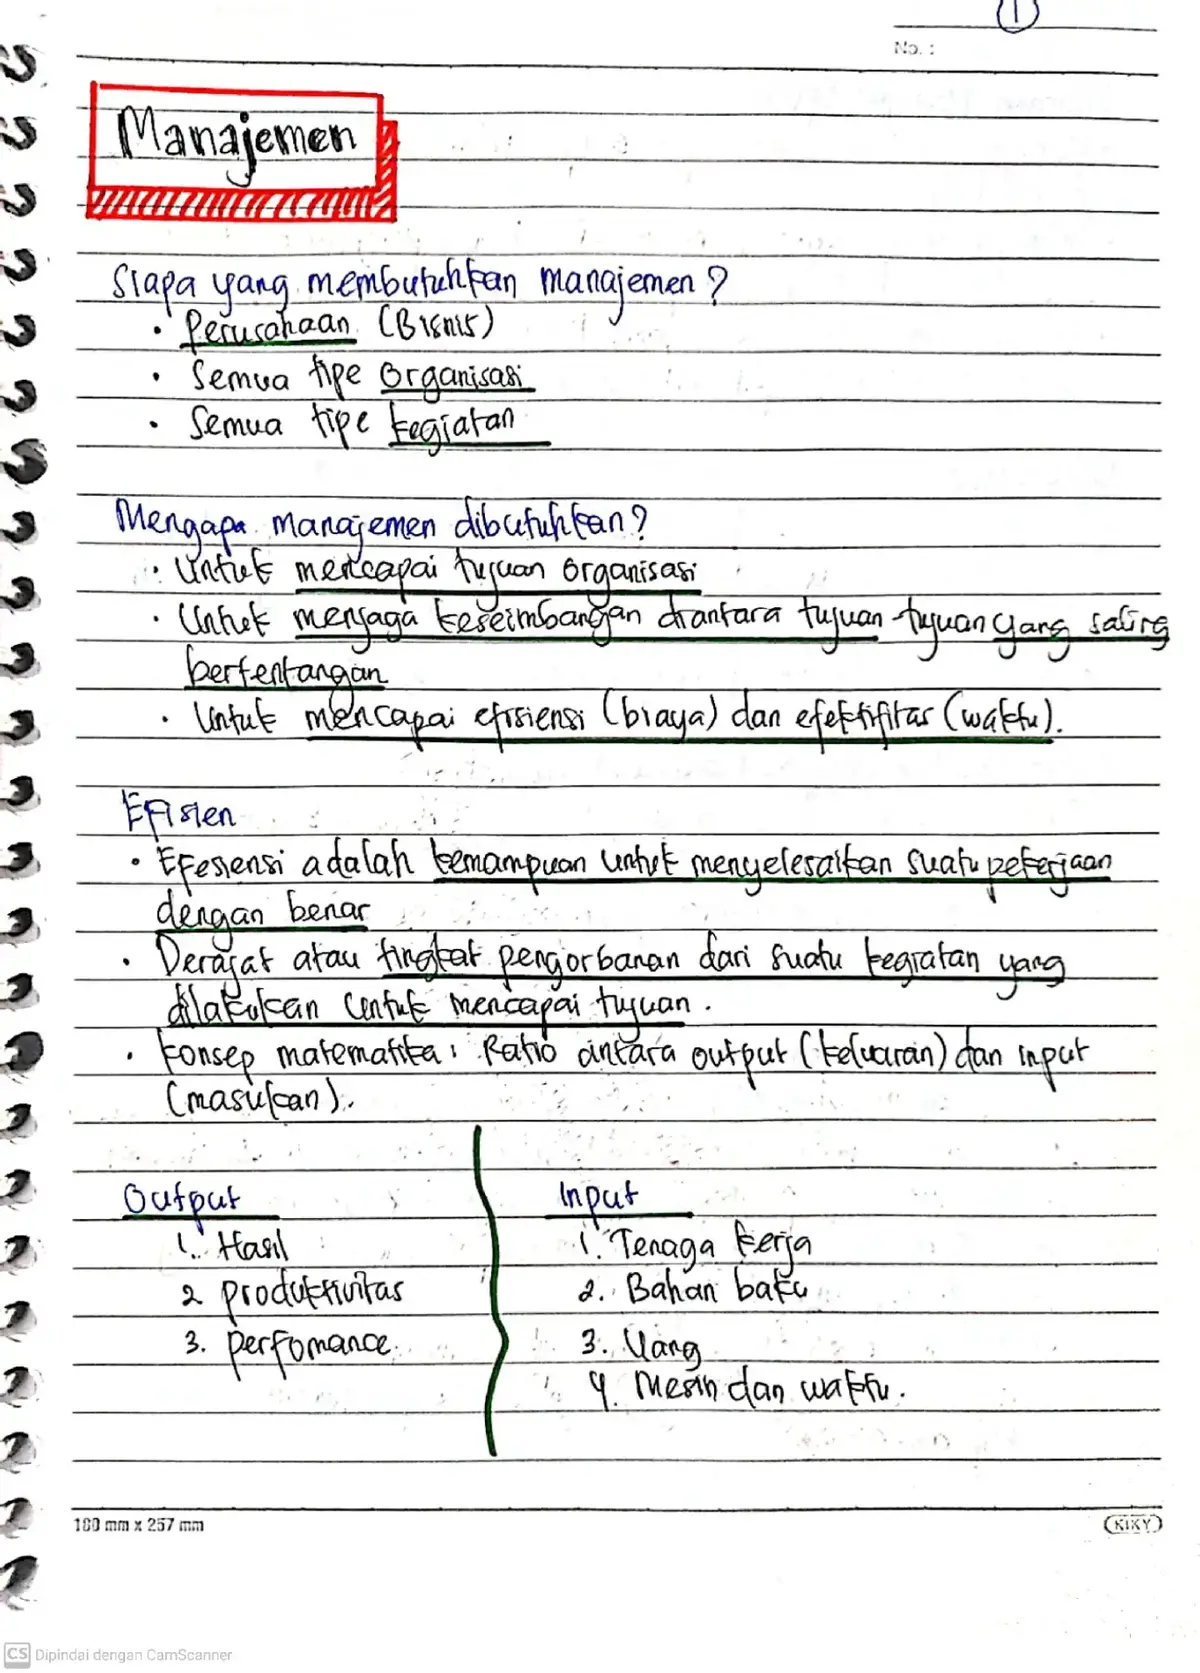 1
No. :
Manajemen
Siapa yang membutuhkan manajemen?
• Perusahaan (Bisnis)
• Semua tipe organisasi
• Semua tipe kegiatan
Mengapa manajemen dibutuhkan?
• Untuk mencapai tujuan organisasi
• Untuk menjaga keseimbangan diantara tujuan-tujuan yang saling
bertentangan
• Untuk mencapai efisiensi (biaya) dan efektifitas (waktu).
Efisien
• Efesiensi adalah kemampuan untuk menyelesaikan suatu pekerjaan
dengan benar
• Derajat atau tingkat pengorbanan dari suatu kegiatan yang
dilakukan untuk mencapai tujuan.
• Konsep matematika: Ratio antara output (keluaran) dan input
(masukan).
Output
1. Hasil
2 produktivitas
3. perfomance.
Input
1. Tenaga kerja
2. Bahan baku
3. Uang
4. Mesin dan waktu.
180 mm x 257 mm
KIKY
CS Dipindai dengan CamScanner